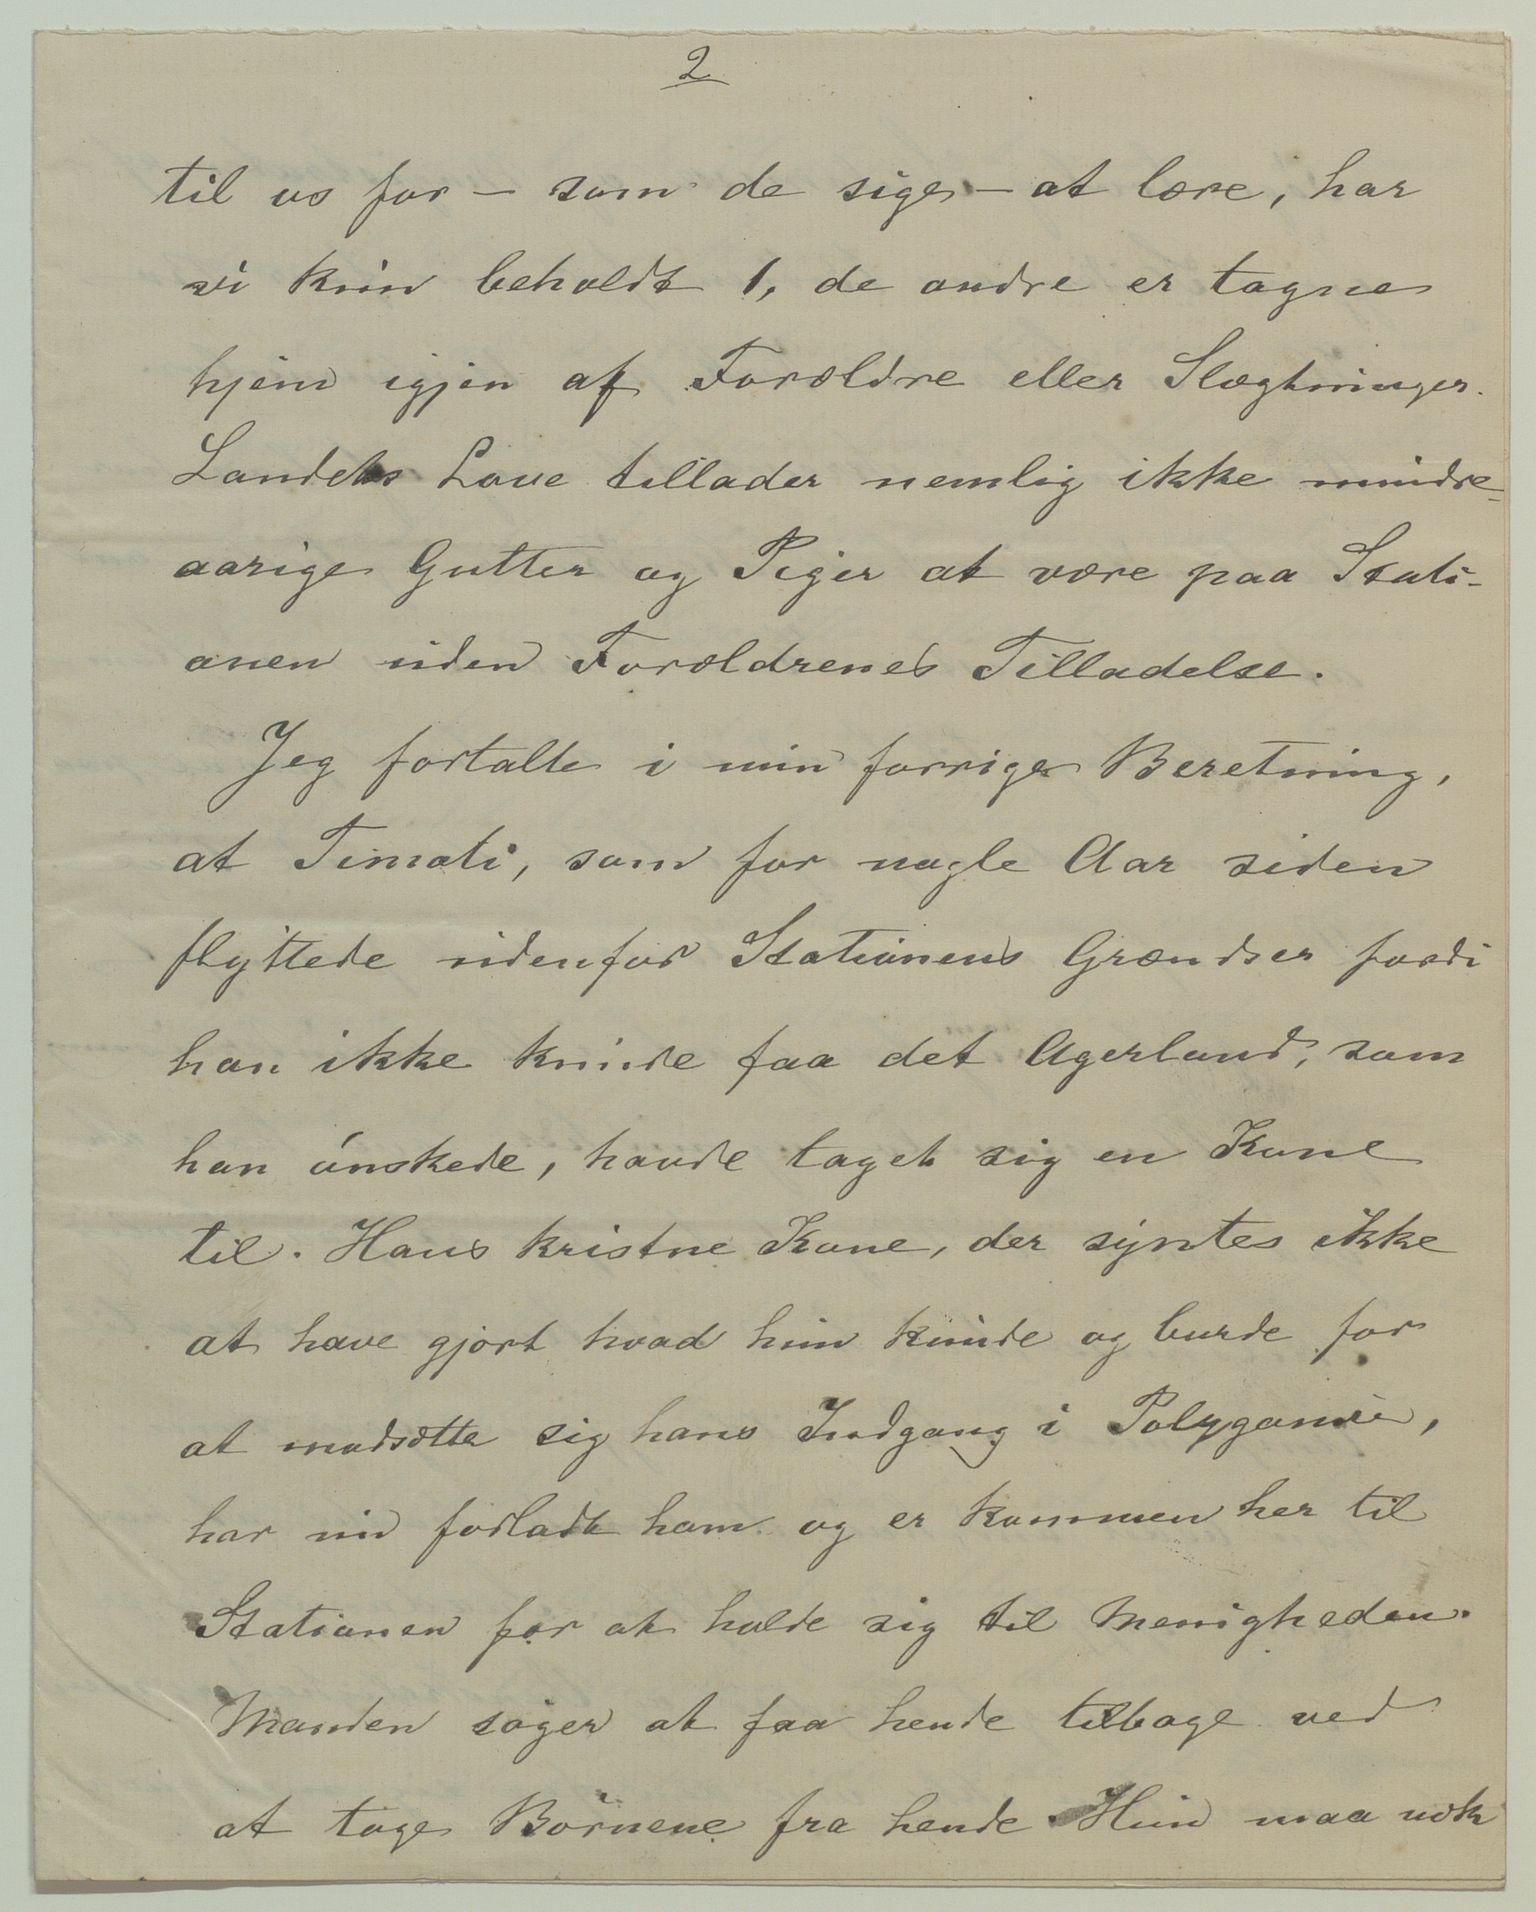 2
til os for – som de sige – at lære, har
vi kun beholdt 1, de andre er tagne
hjem igjen af Forældre eller Slægtninger.
Landets Love tillader nemlig ikke mindre-
aarige Gutter og Piger at være paa Stati-
onen uden Forældrenes Tilladelse.
Jeg fortalte i min forrige Beretning,
at Timoti, som for nogle Aar siden
flyttede udenfor Stationens Grændser fordi
han ikke kunde faa det Agerland, som
han ønskede, havde taget sig en Kone
til. Hans kristne Kone, der syntes ikke
at have gjort hvad hun kunde og burde for
at modsætte sig hans Indgang i Polygamie,
har nu forladt ham og er kommen her til
Stationen for at holde sig til Menigheden.
Manden søger at faa hende tilbage ved
at tage Børnene fra hende. Hun maa nok